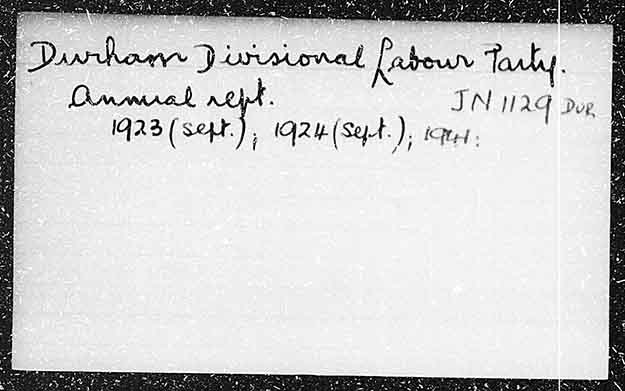 Durham Divisional Labour Party.
Annual rept. JN 1129 DUR
1923 (Sept.); 1924 (Sept.); 1941: